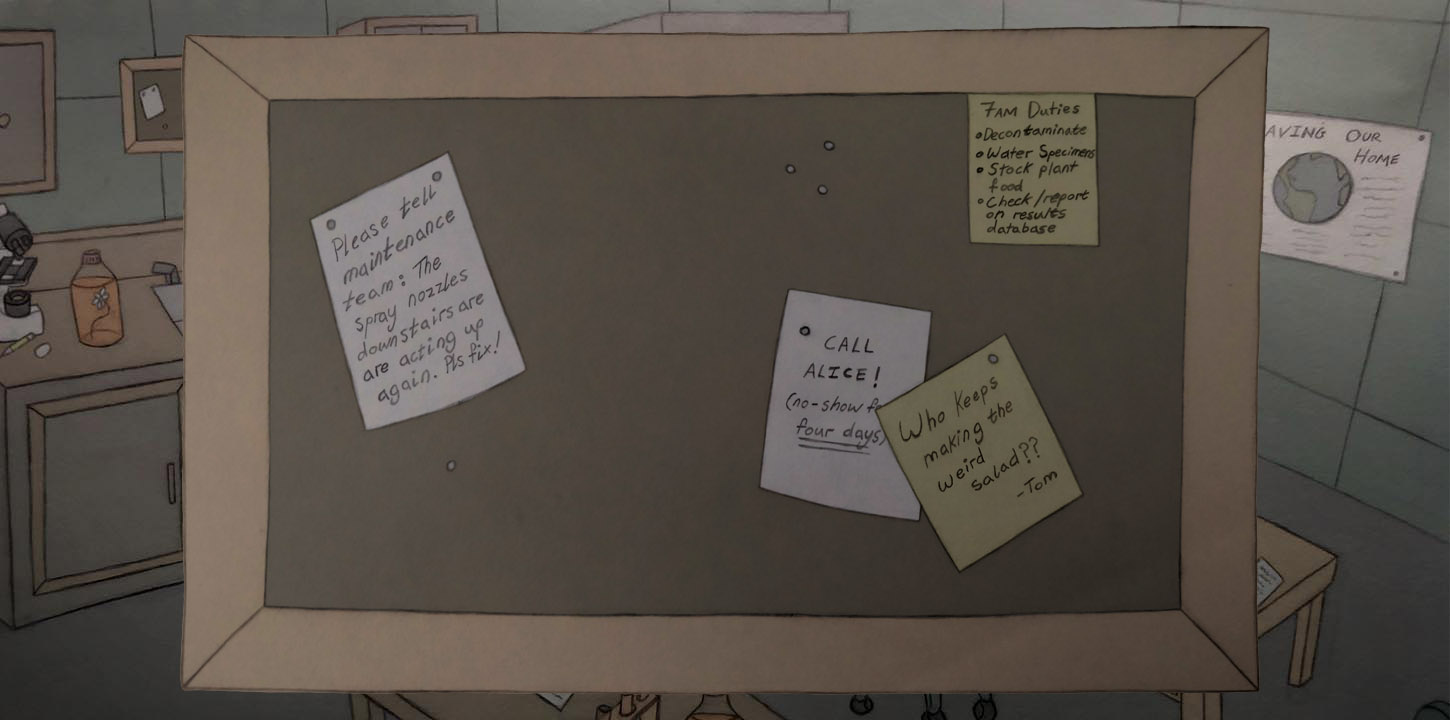 Please tell
maintenance
team: The
spray nozzles
downstairs are
are acting up
again. Pls fix!
7AM Duties
• Decontaminate
• Water Specimens
• Stock plant
food
• Check/report
on results
database
CALL
ALICE!
(no-show
four days)
Who Keeps
making the
weird
salad??
-Tom
AVING OUR
HOME